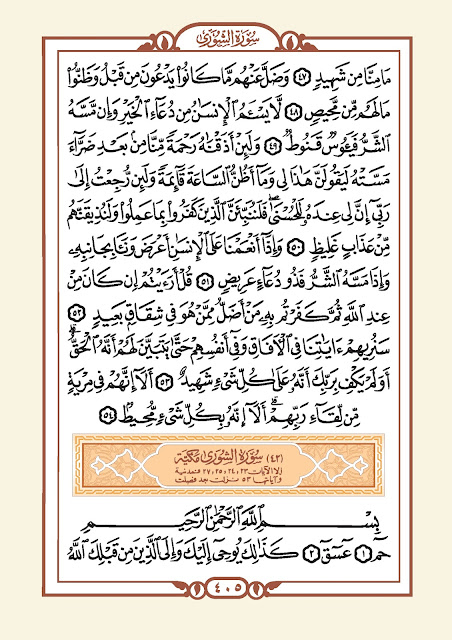 سُورَةُ الشُّورَى
مَا مِنَّا مِن شَهِيدٍ ﴿٤٧﴾ وَضَلَّ عَنْهُم مَّا كَانُوا۟ يَدْعُونَ مِن قَبْلُ وَظَنُّوا۟
مَا لَهُم مِّن مَّحِيصٍ ﴿٤٨﴾ لَّا يَسْـَٔمُ ٱلْإِنسَـٰنُ مِن دُعَآءِ ٱلْخَيْرِ وَإِن مَّسَّهُ
ٱلشَّرُّ فَيَـُٔوسٌ قَنُوطٌ ﴿٤٩﴾ وَلَئِنْ أَذَقْنَـٰهُ رَحْمَةً مِّنَّا مِنۢ بَعْدِ ضَرَّآءَ
مَسَّتْهُ لَيَقُولَنَّ هَـٰذَا لِى وَمَآ أَظُنُّ ٱلسَّاعَةَ قَآئِمَةً وَلَئِن رُّجِعْتُ إِلَىٰ
رَبِّىٓ إِنَّ لِى عِندَهُۥ لَلْحُسْنَىٰ ۚ فَلَنُنَبِّئَنَّ ٱلَّذِينَ كَفَرُوا۟ بِمَا عَمِلُوا۟ وَلَنُذِيقَنَّهُم
مِّنْ عَذَابٍ غَلِيظٍ ﴿٥٠﴾ وَإِذَآ أَنْعَمْنَا عَلَى ٱلْإِنسَـٰنِ أَعْرَضَ وَنَـَٔا بِجَانِبِهِۦ
وَإِذَا مَسَّهُ ٱلشَّرُّ فَذُو دُعَآءٍ عَرِيضٍ ﴿٥١﴾ قُلْ أَرَءَيْتُمْ إِن كَانَ مِنْ
عِندِ ٱللَّهِ ثُمَّ كَفَرْتُم بِهِۦ مَنْ أَضَلُّ مِمَّنْ هُوَ فِى شِقَاقٍۭ بَعِيدٍ ﴿٥٢﴾
سَنُرِيهِمْ ءَايَـٰتِنَا فِى ٱلْـَٔافَاقِ وَفِىٓ أَنفُسِهِمْ حَتَّىٰ يَتَبَيَّنَ لَهُمْ أَنَّهُ ٱلْحَقُّ ۗ
أَوَلَمْ يَكْفِ بِرَبِّكَ أَنَّهُۥ عَلَىٰ كُلِّ شَىْءٍ شَهِيدٌ ﴿٥٣﴾ أَلَآ إِنَّهُمْ فِى مِرْيَةٍ
مِّن لِّقَآءِ رَبِّهِمْ ۗ أَلَآ إِنَّهُۥ بِكُلِّ شَىْءٍ مُّحِيطٌۢ ﴿٥٤﴾
(٤٢) سُورَةُ الشُّورَى مَكِّيَّة
إلا الآيات ٢٣، ٢٤، ٢٥، ٢٧ فمدنية
وآياتها ٥٣ نزلت بعد فصلت
بِسْمِ ٱللَّهِ ٱلرَّحْمَـٰنِ ٱلرَّحِيمِ
حمٓ ﴿١﴾ عٓسٓقٓ ﴿٢﴾ كَذَٰلِكَ يُوحِىٓ إِلَيْكَ وَإِلَى ٱلَّذِينَ مِن قَبْلِكَ ٱللَّهُ
٤٠٥